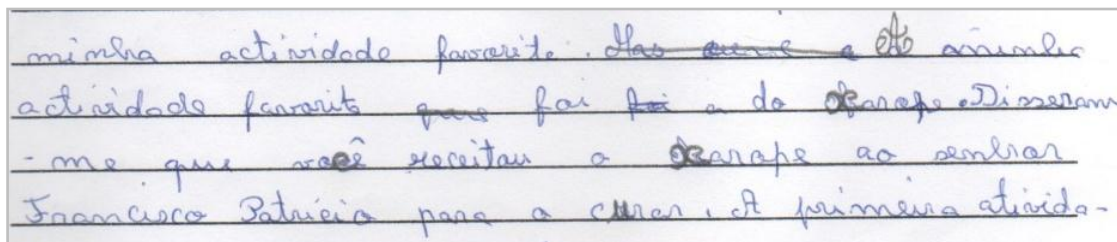 minha actividade favorita. A aminha
actividade favorita foi a do xarope. Disseram
-me que você receitou o xarope ao senhor
Francisco Patrício para o curar. A primeira ativida-